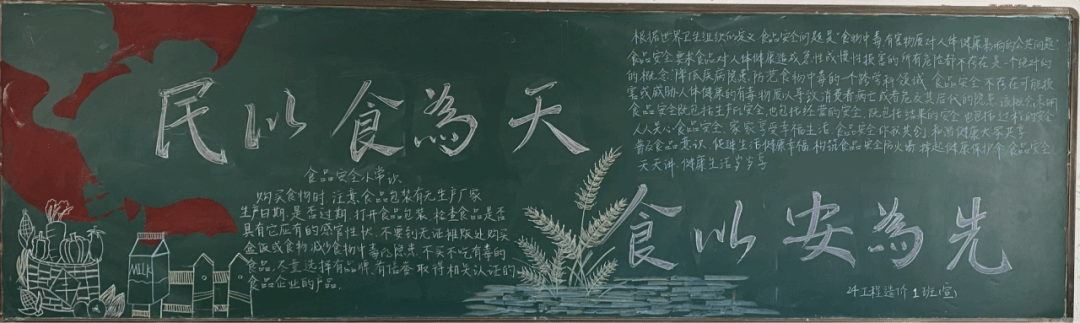 民以食為天
食品安全小常识
购买食物时 注意食品包装有无生产厂家
生产日期,是否过期,打开食品包装,检查食品是否
具有它应有的感官性状.不要到无证摊贩处购买
盒饭或食物 减少食物中毒的隐患 不买不吃有毒的
食品.尽量选择有品牌、有信誉 取得相关认证的
食品企业的产品.
MILK
根据世界卫生组织的定义 食品安全问题是"食物中毒有害物质对人体健康影响的公共问题"
食品安全要求食品对人体健康造成急性或慢性损害的所有危险都不存在 是一个绝对的
的概念 降低疾病隐患 防范食物中毒的一个跨学科领域 食品安全 不存在可能损
害或威胁人体健康的有毒物质以导致消费者病亡或者危及其后代的隐患 该概念表明
食品安全既包括生产的安全,也包括经营的安全,既包括结果的安全 也包括过程的安全
人人关心食品安全 家家享受幸福生活 食品安全你我共创 和谐健康大家共享
普及食品意识 促进生活健康幸福 构筑食品安全防火墙 撑起健康保护伞 食品安全
天天讲 健康生活岁岁享
食以安為先
24工程造价1班(宣)